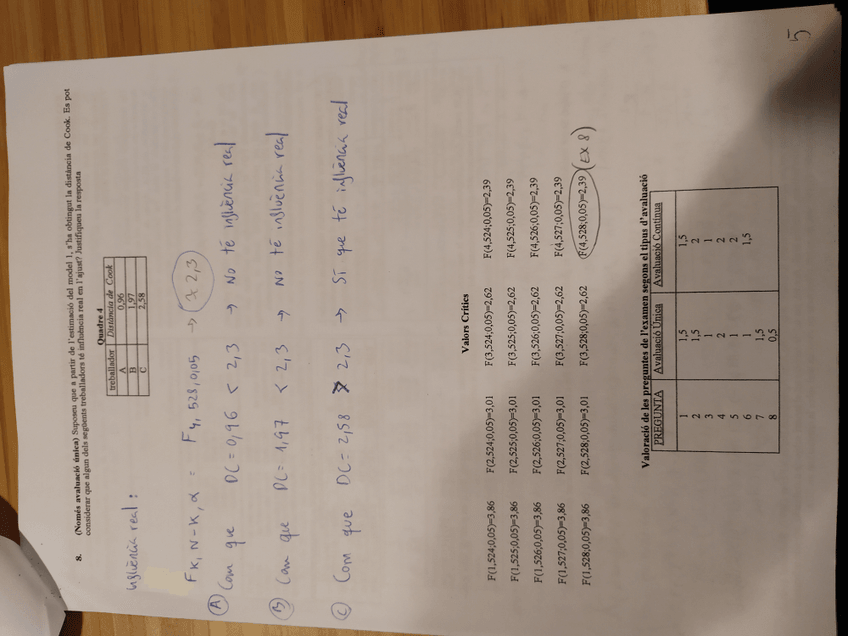 8. (Només avaluació única) Suposeu que a partir de l'estimació del model 1, s'ha obtingut la distància de Cook. Es pot
considerar que algun dels següents treballadors té influència real en l'ajust? Justifiqueu la resposta
Quadre 4
treballador Distància de Cook
A 0,96
B 1,97
C 2,58
Influència real:
FK, N-K, α = F4, 528, 0,05 → 2,3
A Com que DC = 0,96 < 2,3 → No té influència real
B Com que DC = 1,97 < 2,3 → No té influència real
C Com que DC = 2,58 > 2,3 → Sí que té influència real
Valors Crítics
F(1,524;0,05)=3,86 F(2,524;0,05)=3,01 F(3,524;0,05)=2,62 F(4,524;0,05)=2,39
F(1,525;0,05)=3,86 F(2,525;0,05)=3,01 F(3,525;0,05)=2,62 F(4,525;0,05)=2,39
F(1,526;0,05)=3,86 F(2,526;0,05)=3,01 F(3,526;0,05)=2,62 F(4,526;0,05)=2,39
F(1,527;0,05)=3,86 F(2,527;0,05)=3,01 F(3,527;0,05)=2,62 F(4,527;0,05)=2,39
F(1,528;0,05)=3,86 F(2,528;0,05)=3,01 F(3,528;0,05)=2,62 F(4,528;0,05)=2,39 (EX 8)
Valoració de les preguntes de l'examen segons el tipus d'avaluació
PREGUNTA Avaluació Única Avaluació Contínua
1 1,5 1,5
2 1,5 2
3 1 1
4 2 2
5 1 2
6 1 1,5
7 1,5
8 0,5
5